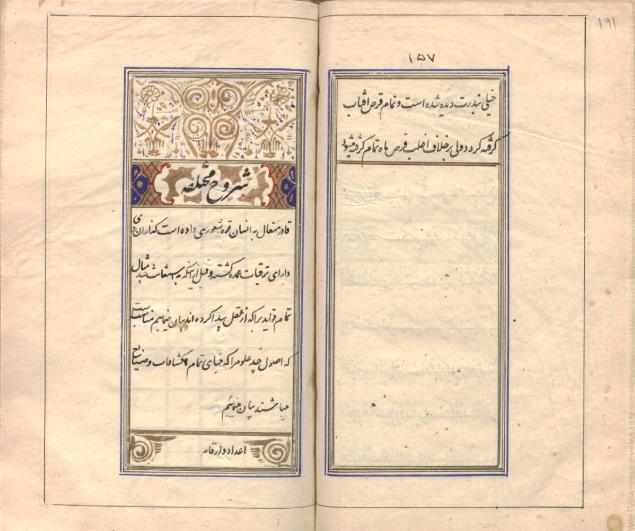 ۱۹۱
۱۵۷
خیلی بندرت دیده شده است و تمام قرص افتاب
گرفته کردد ولی برخلاف اغلب قرص ماه تمام گرفته میشود
شروح مختلفه
قادر متعال به انسان قوه شعوری داده است که دارای
دارای ترقیات عمده گشته و قبل از اینکه
تمام فوایدیرا که از عقل پیدا کرده اند بیان نمائیم مناسب است
که اصول چند علوم را که مبنای تمام اکتشافات و صنایع
میباشند بیان نمائیم
اعداد و ارقام